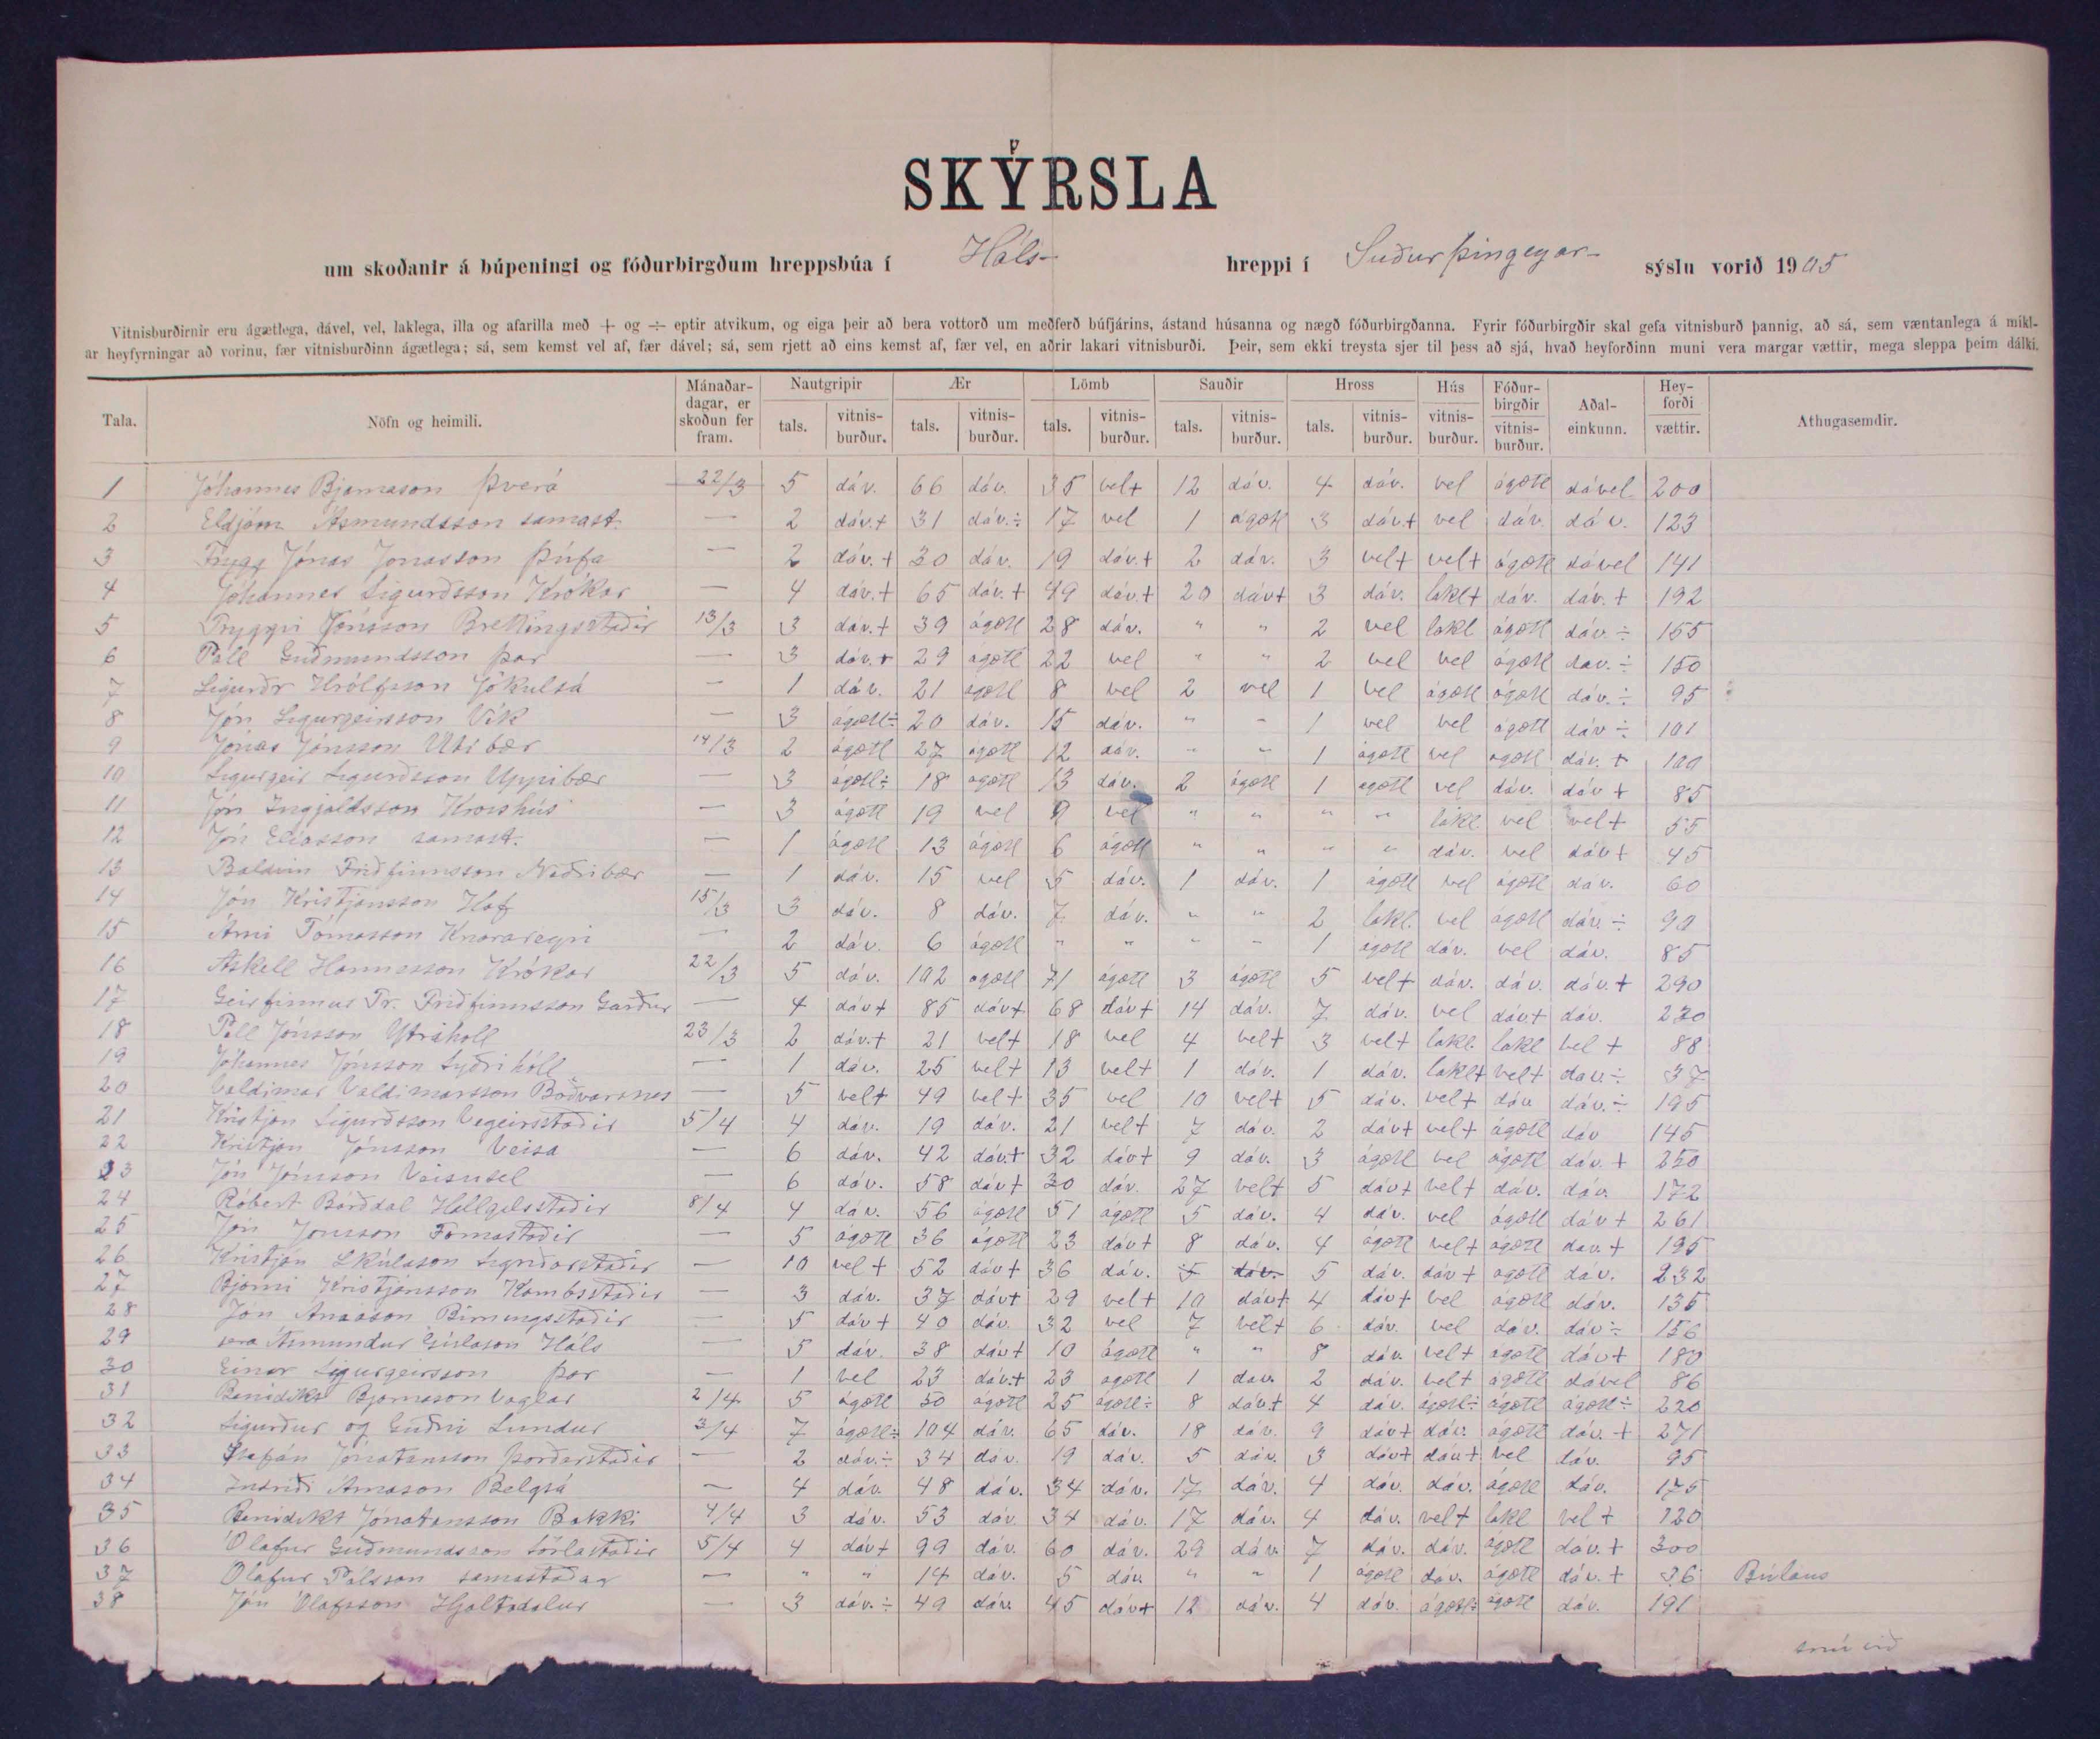 SKÝRSLA
um skoðanir á búpeningi og fóðurbirgðum hreppsbúa í Háls- hreppi í Suður þingeyar- sýslu vorið 1905
Vitnisburðirnir eru ágætlega, dável, vel, laklega, illa og afarilla með + og ÷ eptir atvikum, og eiga þeir að bera vottorð um meðferð búfjárins, ástand húsanna og nægð fóðurbirgðanna. Fyrir fóðurbirgðir skal gefa vitnisburð þannig, að sá, sem væntanlega á mikl-
ar heyfyrningar að vorinu, fær vitnisburðinn ágætlega; sá, sem kemst vel af, fær dável; sá, sem rjett að eins kemst af, fær vel, en aðrir lakari vitnisburði. Þeir, sem ekki treysta sjer til þess að sjá, hvað heyforðinn muni vera margar vættir, mega sleppa þeim dálki.
Tala. Nöfn og heimili. Mánaðar-dagar, er skoðun fer fram. Nautgripir tals. vitnis-burður. Ær tals. vitnis-burður. Lömb tals. vitnis-burður. Sauðir tals. vitnis-burður. Hross tals. vitnis-burður. Hús vitnis-burður. Fóður-birgðir vitnis-burður. Aðal-einkunn. Hey-forði vættir. Athugasemdir.
1 Jóhannes Bjarnason Þverá 22/3 5 dáv. 66 dáv. 35 vel+ 12 dáv. 4 dáv. vel ágætl dável 200
2 Eldjárn Ásmundsson samast. — 2 dáv.+ 31 dáv.÷ 17 vel 1 ágætl 3 dáv.+ vel dáv. dáv. 123
3 Jónas Jonasson Þúfa — 2 dáv.+ 30 dáv. 19 dáv.+ 2 dáv. 3 vel+ vel+ ágætl dável 141
4 Jóhannes Sigurðsson Krókar — 4 dáv.+ 65 dáv.+ 49 dáv.+ 20 dáv+ 3 dáv. lakl+ dáv. dáv.+ 192
5 Tryggvi Jónsson Brettingsstaðir 13/3 3 dáv.+ 39 ágætl 28 dáv. " " 2 vel lakl ágætl dáv÷ 155
6 Páll Guðmundsson þar — 3 dáv.+ 29 ágætl 22 vel " " 2 vel vel ágætl dav.÷ 150
7 Sigurðr Hrólfsson Jökulsá — 1 dáv. 21 ágætl 8 vel 2 vel 1 vel ágætl ágætl dáv.÷ 95
8 Jón Sigurgeirsson Vík — 3 ágætl÷ 20 dáv. 15 dáv. " " 1 vel vel ágætl dáv÷ 101
9 Jónas Jónsson Útibær 14/3 2 ágætl 27 ágætl 12 dáv. " " 1 ágætl vel ágætl dáv.+ 100
10 Sigurgeir Sigurðsson Uppibær — 3 ágætl÷ 18 ágætl 13 dáv. 2 ágætl 1 ágætl vel dáv. dáv+ 85
11 Jón Ingjaldsson Kroshús — 3 ágætl 19 vel 9 vel " " " " lakl. vel vel+ 55
12 Jón Elíasson samast. — 1 ágætl 13 ágætl 6 ágætl " " " " dáv. vel dáv+ 45
13 Baldvin Friðfinnsson Neðribær — 1 dáv. 15 vel 5 dáv. 1 dáv. 1 ágætl vel ágætl dáv. 60
14 Jón Kristjánsson Hof 15/3 3 dáv. 8 dáv. 7 dáv. " " 2 lakl. vel ágætl dáv.÷ 90
15 Árni Tómasson Knarareyri — 2 dáv. 6 ágætl " " " " 1 ágætl dáv. vel dáv. 85
16 Áskell Hannesson Krókar 22/3 5 dáv. 102 ágætl 71 ágætl 3 ágætl 5 vel+ dáv. dáv. dáv.+ 290
17 Geirfinnur Tr. Friðfinnsson Garður — 4 dáv+ 85 dáv+ 68 dáv+ 14 dáv. 7 dáv. vel dáv+ dáv. 230
18 Páll Jónsson Ytrihóll 23/3 2 dáv.+ 21 vel+ 18 vel 4 vel+ 3 vel+ lakl. lakl vel+ 88
19 Jóhannes Jónsson Syðrihóll — 1 dáv. 25 vel+ 13 vel+ 1 dáv. 1 dáv. lakl+ vel+ dav.÷ 37
20 Valdimar Valdimarsson Böðvarsnes — 5 vel+ 49 vel+ 35 vel 10 vel+ 5 dáv. vel+ dáv dáv.÷ 195
21 Kristján Sigurðsson Vegeirsstaðir 5/4 4 dav. 19 dáv. 21 vel+ 7 dáv. 2 dáv+ vel+ ágætl dáv 145
22 Kristján Jónsson Veisa — 6 dáv. 42 dáv.+ 32 dáv+ 9 dáv. 3 ágætl vel ágætl dáv.+ 250
23 Jón Jónsson Veisusel — 6 dáv. 58 dáv+ 30 dáv. 27 vel+ 5 dáv+ vel+ dáv. dáv. 172
24 Róbert Bárðdal Hallgilsstaðir 8/4 4 dáv. 56 ágætl 51 ágætl 5 dáv. 4 dáv. vel ágætl dáv+ 261
25 Jón Jónsson Fornastaðir — 5 ágætl 36 ágætl 23 dáv+ 8 dáv. 4 ágætl vel+ ágætl dav.+ 195
26 Kristján Skúlason Sigríðarstaðir — 10 vel+ 52 dáv+ 36 dáv. 5 dáv. 5 dáv. dáv+ ágætl dáv. 232
27 Bjarni Kristjánsson Kambsstaðir — 3 dáv. 37 dáv+ 29 vel+ 10 dáv+ 4 dáv+ vel ágætl dáv. 135
28 Jón Árnason Birningsstaðir — 5 dáv+ 40 dáv. 32 vel 7 vel+ 6 dáv. vel dáv. dáv÷ 156
29 sera Ásmundur Gíslason Háls — 5 dáv. 38 dáv+ 10 ágætl " " 8 dáv. vel+ ágætl dáv+ 180
30 Einar Sigurgeirsson þar — 1 vel 23 dáv.+ 23 ágætl 1 dav. 2 dáv. vel+ ágætl dável 86
31 Benidikt Bjarnason Vaglar 2/4 5 ágætl 50 ágætl 25 ágætl÷ 8 dáv.+ 4 dáv. ágætl÷ ágætl ágætl÷ 220
32 Sigurður og Guðni Lundur 3/4 7 ágætl÷ 104 dáv. 65 dáv. 18 dáv. 9 dáv+ dáv. ágætl dáv.+ 271
33 Stefán Jónatansson Þorðarstaðir — 2 dáv.÷ 34 dáv. 19 dáv. 5 dáv. 3 dáv+ dáv+ vel dáv. 95
34 Indriði Árnason Belgsá — 4 dáv. 48 dáv. 34 dáv. 17 dáv. 4 dáv. dáv. ágætl dáv. 175
35 Benidikt Jónatansson Bakki 4/4 3 dáv. 53 dáv. 34 dáv. 17 dáv. 4 dáv. vel+ lakl vel+ 120
36 Ólafur Guðmundsson Sörlastaðir 5/4 4 dáv+ 99 dáv. 60 dáv. 29 dáv. 7 dáv. dáv. ágætl dáv.+ 300
37 Ólafur Pálsson samastaðar — " " 14 dáv. 5 dáv. " " 1 ágætl dav. ágætl dáv.+ 36 Búlaus
38 Jón Ólafsson Hjaltadalur — 3 dáv.÷ 49 dáv. 45 dáv+ 12 dáv. 4 dáv. ágætl÷ ágætl dáv. 191
snú við